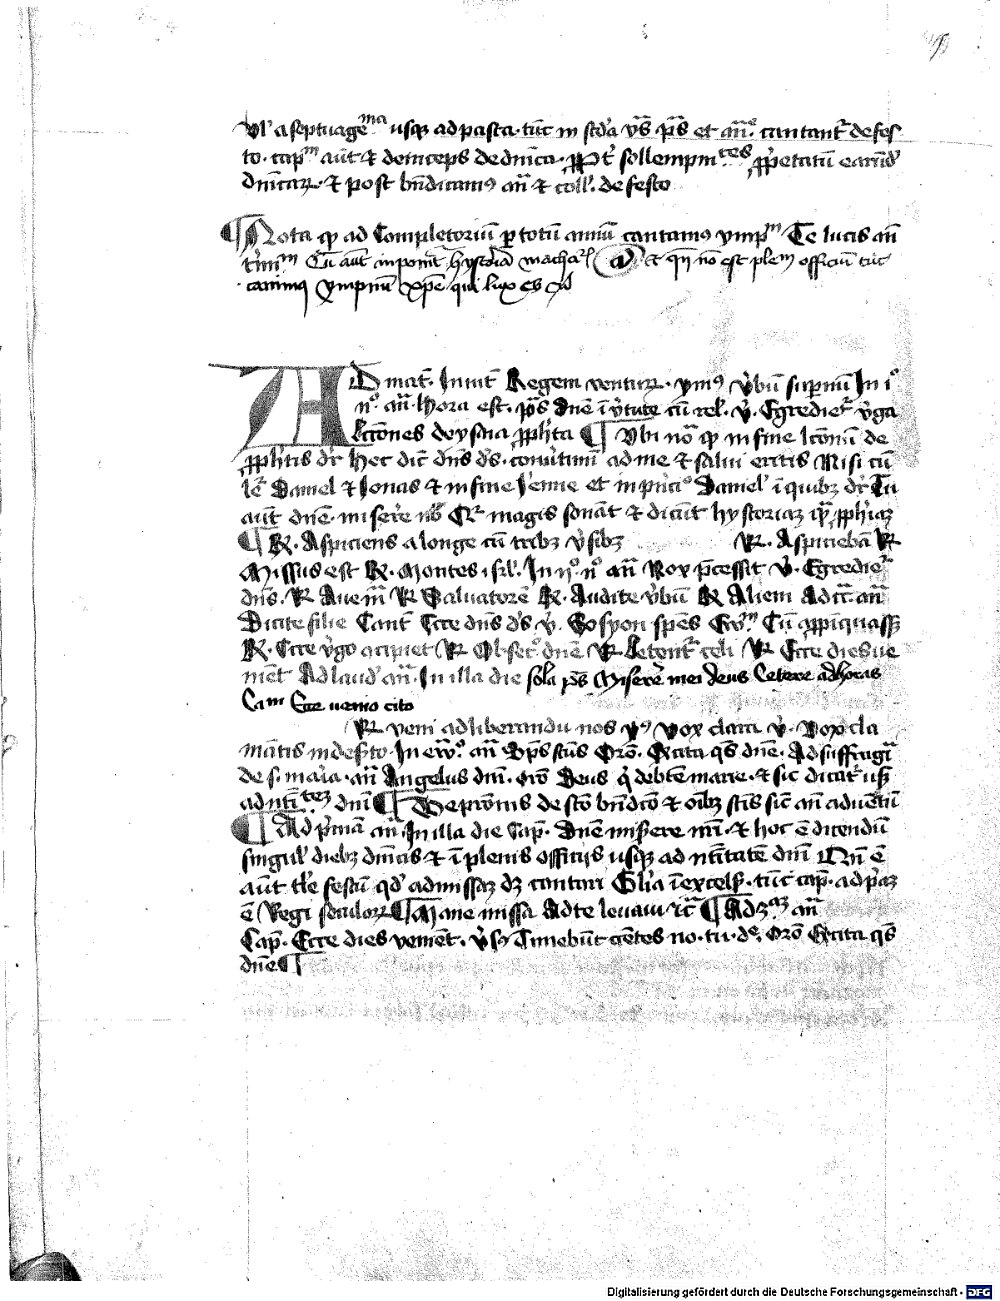 Ul' a septuage^ma usqz ad pasca tūc in scd'a vs̄ ps̄ et an̄ cantant' de fes
to cap^m aūt & deinceps de dnīca sollempni^tes ꝓp̄etatū earūd'
dnīcarꝝ & post bn̄dicamꝰ an̄ & coll' de festo
¶ Nota qꝫ ad Completoriū ꝑ totū annū cantamꝰ ympn̄ Te lucis an̄
t̄mīm Cū aūt inponit̄ hystoria machab & qn̄ nō est plen offic̄iū tūc
canimꝰ ympnū xp̄e qui lux es &
AD mat̄ Inuit̄ Regem ventur ymꝰ v̄bū sup̄nū In i°
n° an̄ hora est ps̄ Dn̄e ī v̄tute cū rel' v̄ Egrediet̄ v̄ga
lcc̄ones de ysaia ꝓph̄ta ¶ Ubi no° qꝫ in fine lcōnū de
ꝓph̄tis dr̄ hec dic̄ dn̄s ds̄ cōu̓timī ad me & salui eritis Nisi cū
le' Daniel & Ionas & in fine Ie'mie et in pn̄ci° Daniel' ī quibꝫ dr̄ Tu
aūt dn̄e miser̄e nob̄ Qr̄ magis sonāt & dicūt hystoriaꝫ qꝫ ꝓph̄iaꝫ
¶ R̄ Aspiciens a longe cū tribꝫ v̄sibꝫ R̄ Aspiciebā R̄
Missus est R̄ Montes isrl' In ii° n° an̄ Nox p̄cessit v̄ Egrediet̄
dn̄s R̄ Aue mā R̄ Saluatorē R̄ Audite v̄bū R̄ Aliem Ad cāt an̄
Dicite filie Cant̄ Ecce dn̄s ds̄ v̄ So syon spēs Ew^m Cū apppīquasꝫ
R̄ Ecce v̄go acipiet R̄ Obsec° dn̄e R̄ Letent̄ celi R̄ Ecce dies ue
niēt Ad laud' an̄ In illa die sola ps̄ Miserer̄e mei deus Cetere ad horas
Cam Ecce uenio cito
R̄ veni ad liberandu nos ymꝰ Vox clara v̄ Vox cla
mātis in des̄to In ew° an̄ Sps̄ sc̄us Orō Excita qs̄ dn̄e Ad suffragī
de s maīa an̄ Angelus dnī orō Deus q̄ de bt̄e marie & sic dicat̄ usqꝫ
ad nti^tez dnī ¶ De patronis de sc̄o bn̄dicō & oībꝫ sc̄is sic an̄ aduentū
¶ Ad p̄mā an̄ In illa die Cap̄ Dn̄e miserere nr̄i & hoc ē dicendū
singul' diebꝫ dnīcis & ī plenis officijs usqꝫ ad ntītatē dnī Nisi ē
aūt tl'e festū qd' ad missaꝫ dꝫ cantari Gl'ia īexcels' tūc cap̄ ad p̄aꝫ
ē Regi seculorꝝ ¶ Mane missa Ad te leuaui ic̄ ¶ Ad ꝫ^aꝫ an̄
Cap̄ Ecce dies venient v̄sꝰ Timebūt gentes no tu de orō Excita qs̄
dn̄e ¶
Digitalisierung gefördert durch die Deutsche Forschungsgemeinschaft - DFG